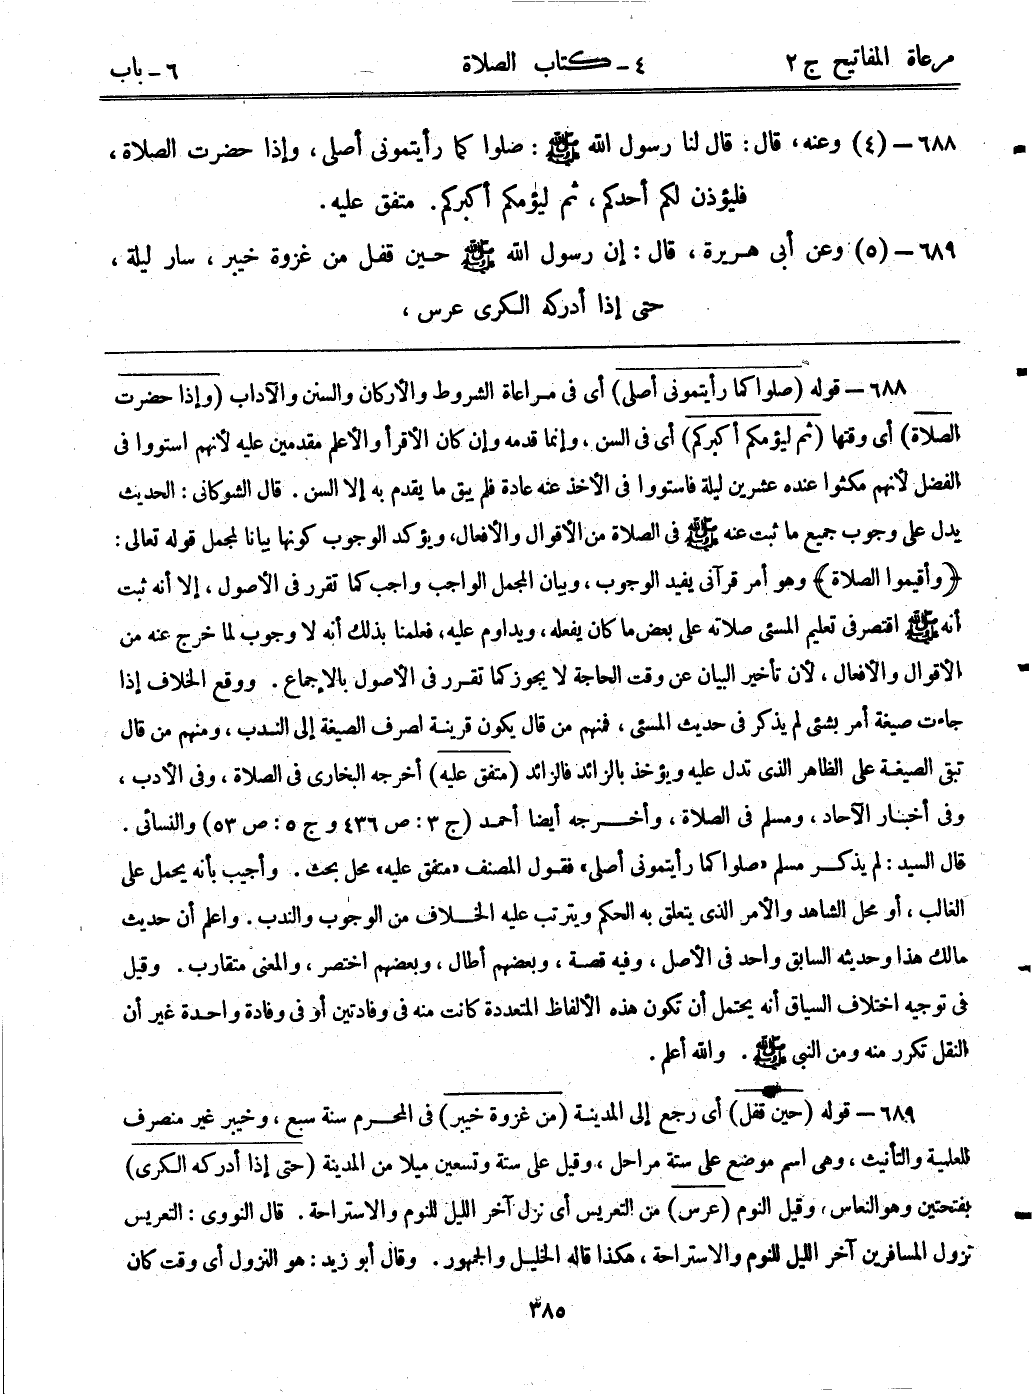 مرعاة المفاتيح ج ٢ ٤ ـ كتاب الصلاة ٦ ـ باب
٦٨٨ ـ (٤) وعنه، قال: قال لنا رسول الله ﷺ: صلوا كما رأيتمونى أصلى، وإذا حضرت الصلاة،
فليؤذن لكم أحدكم، ثم ليؤمكم أكبركم. متفق عليه.
٦٨٩ ـ (٥) وعن أبى هريرة، قال: إن رسول الله ﷺ حين قفل من غزوة خيبر، سار ليلة،
حتى إذا أدركه الكرى عرس،
٦٨٨ ـ قوله (صلوا كما رأيتمونى أصلى) أى فى مراعاة الشروط والأركان والسنن والآداب (وإذا حضرت
الصلاة) أى وقتها (ثم ليؤمكم أكبركم) أى فى السن. وإنما قدمه وإن كان الأقرأ والأعلم مقدمين عليه لأنهم استووا فى
الفضل لأنهم مكثوا عنده عشرين ليلة فاستووا فى الأخذ عنه عادة فلم يبق ما يقدم به إلا السن. قال الشوكانى: الحديث
يدل على وجوب جميع ما ثبت عنه ﷺ فى الصلاة من الأقوال والأفعال، ويؤكد الوجوب كونها بيانا لمجمل قوله تعالى:
﴿وأقيموا الصلاة﴾ وهو أمر قرآنى يفيد الوجوب، وبيان المجمل الواجب واجب كما تقرر فى الأصول، إلا أنه ثبت
أنه ﷺ اقتصر فى تعليم المسئى صلاته على بعض ما كان يفعله، ويداوم عليه، فعلمنا بذلك أنه لا وجوب لما خرج عنه من
الأقوال والأفعال، لأن تأخير البيان عن وقت الحاجة لا يجوز كما تقرر فى الأصول بالإجماع. ووقع الخلاف إذا
جاءت صيغة أمر بشئى لم يذكر فى حديث المسئى، فمنهم من قال يكون قرينة لصرف الصيغة إلى الندب، ومنهم من قال
تبقى الصيغة على الظاهر الذى تدل عليه ويؤخذ بالزائد فالزائد (متفق عليه) أخرجه البخارى فى الصلاة، وفى الأدب،
وفى أخبار الآحاد، ومسلم فى الصلاة، وأخرجه أيضا أحمد (ج ٣: ص ٤٣٦ و ج ٥: ص ٥٣) والنسائى.
قال السيد: لم يذكر مسلم «صلوا كما رأيتمونى أصلى» فقول المصنف «متفق عليه» محل بحث. وأجيب بأنه يحمل على
الغالب، أو محل الشاهد والأمر الذى يتعلق به الحكم ويترتب عليه الخلاف من الوجوب والندب. واعلم أن حديث
مالك هذا وحديثه السابق واحد فى الأصل، وفيه قصة، وبعضهم أطال، وبعضهم اختصر، والمعنى متقارب. وقيل
فى توجيه اختلاف السياق أنه يحتمل أن تكون هذه الألفاظ المتعددة كانت منه فى وفادتين أو فى وفادة واحدة غير أن
النقل تكرر منه ومن النبى ﷺ. والله أعلم.
٦٨٩ ـ قوله (حين قفل) أى رجع إلى المدينة (من غزوة خيبر) فى المحرم سنة سبع، وخيبر غير منصرف
للعلمية والتأنيث، وهى اسم موضع على ستة مراحل، وقيل على ستة وتسعين ميلا من المدينة (حتى إذا أدركه الكرى)
بفتحتين وهو النعاس، وقيل النوم (عرس) من التعريس أى نزل آخر الليل للنوم والاستراحة. قال النووى: التعريس
نزول المسافرين آخر الليل للنوم والاستراحة، هكذا قاله الخليل والجمهور. وقال أبو زيد: هو النزول أى وقت كان
٣٨٥